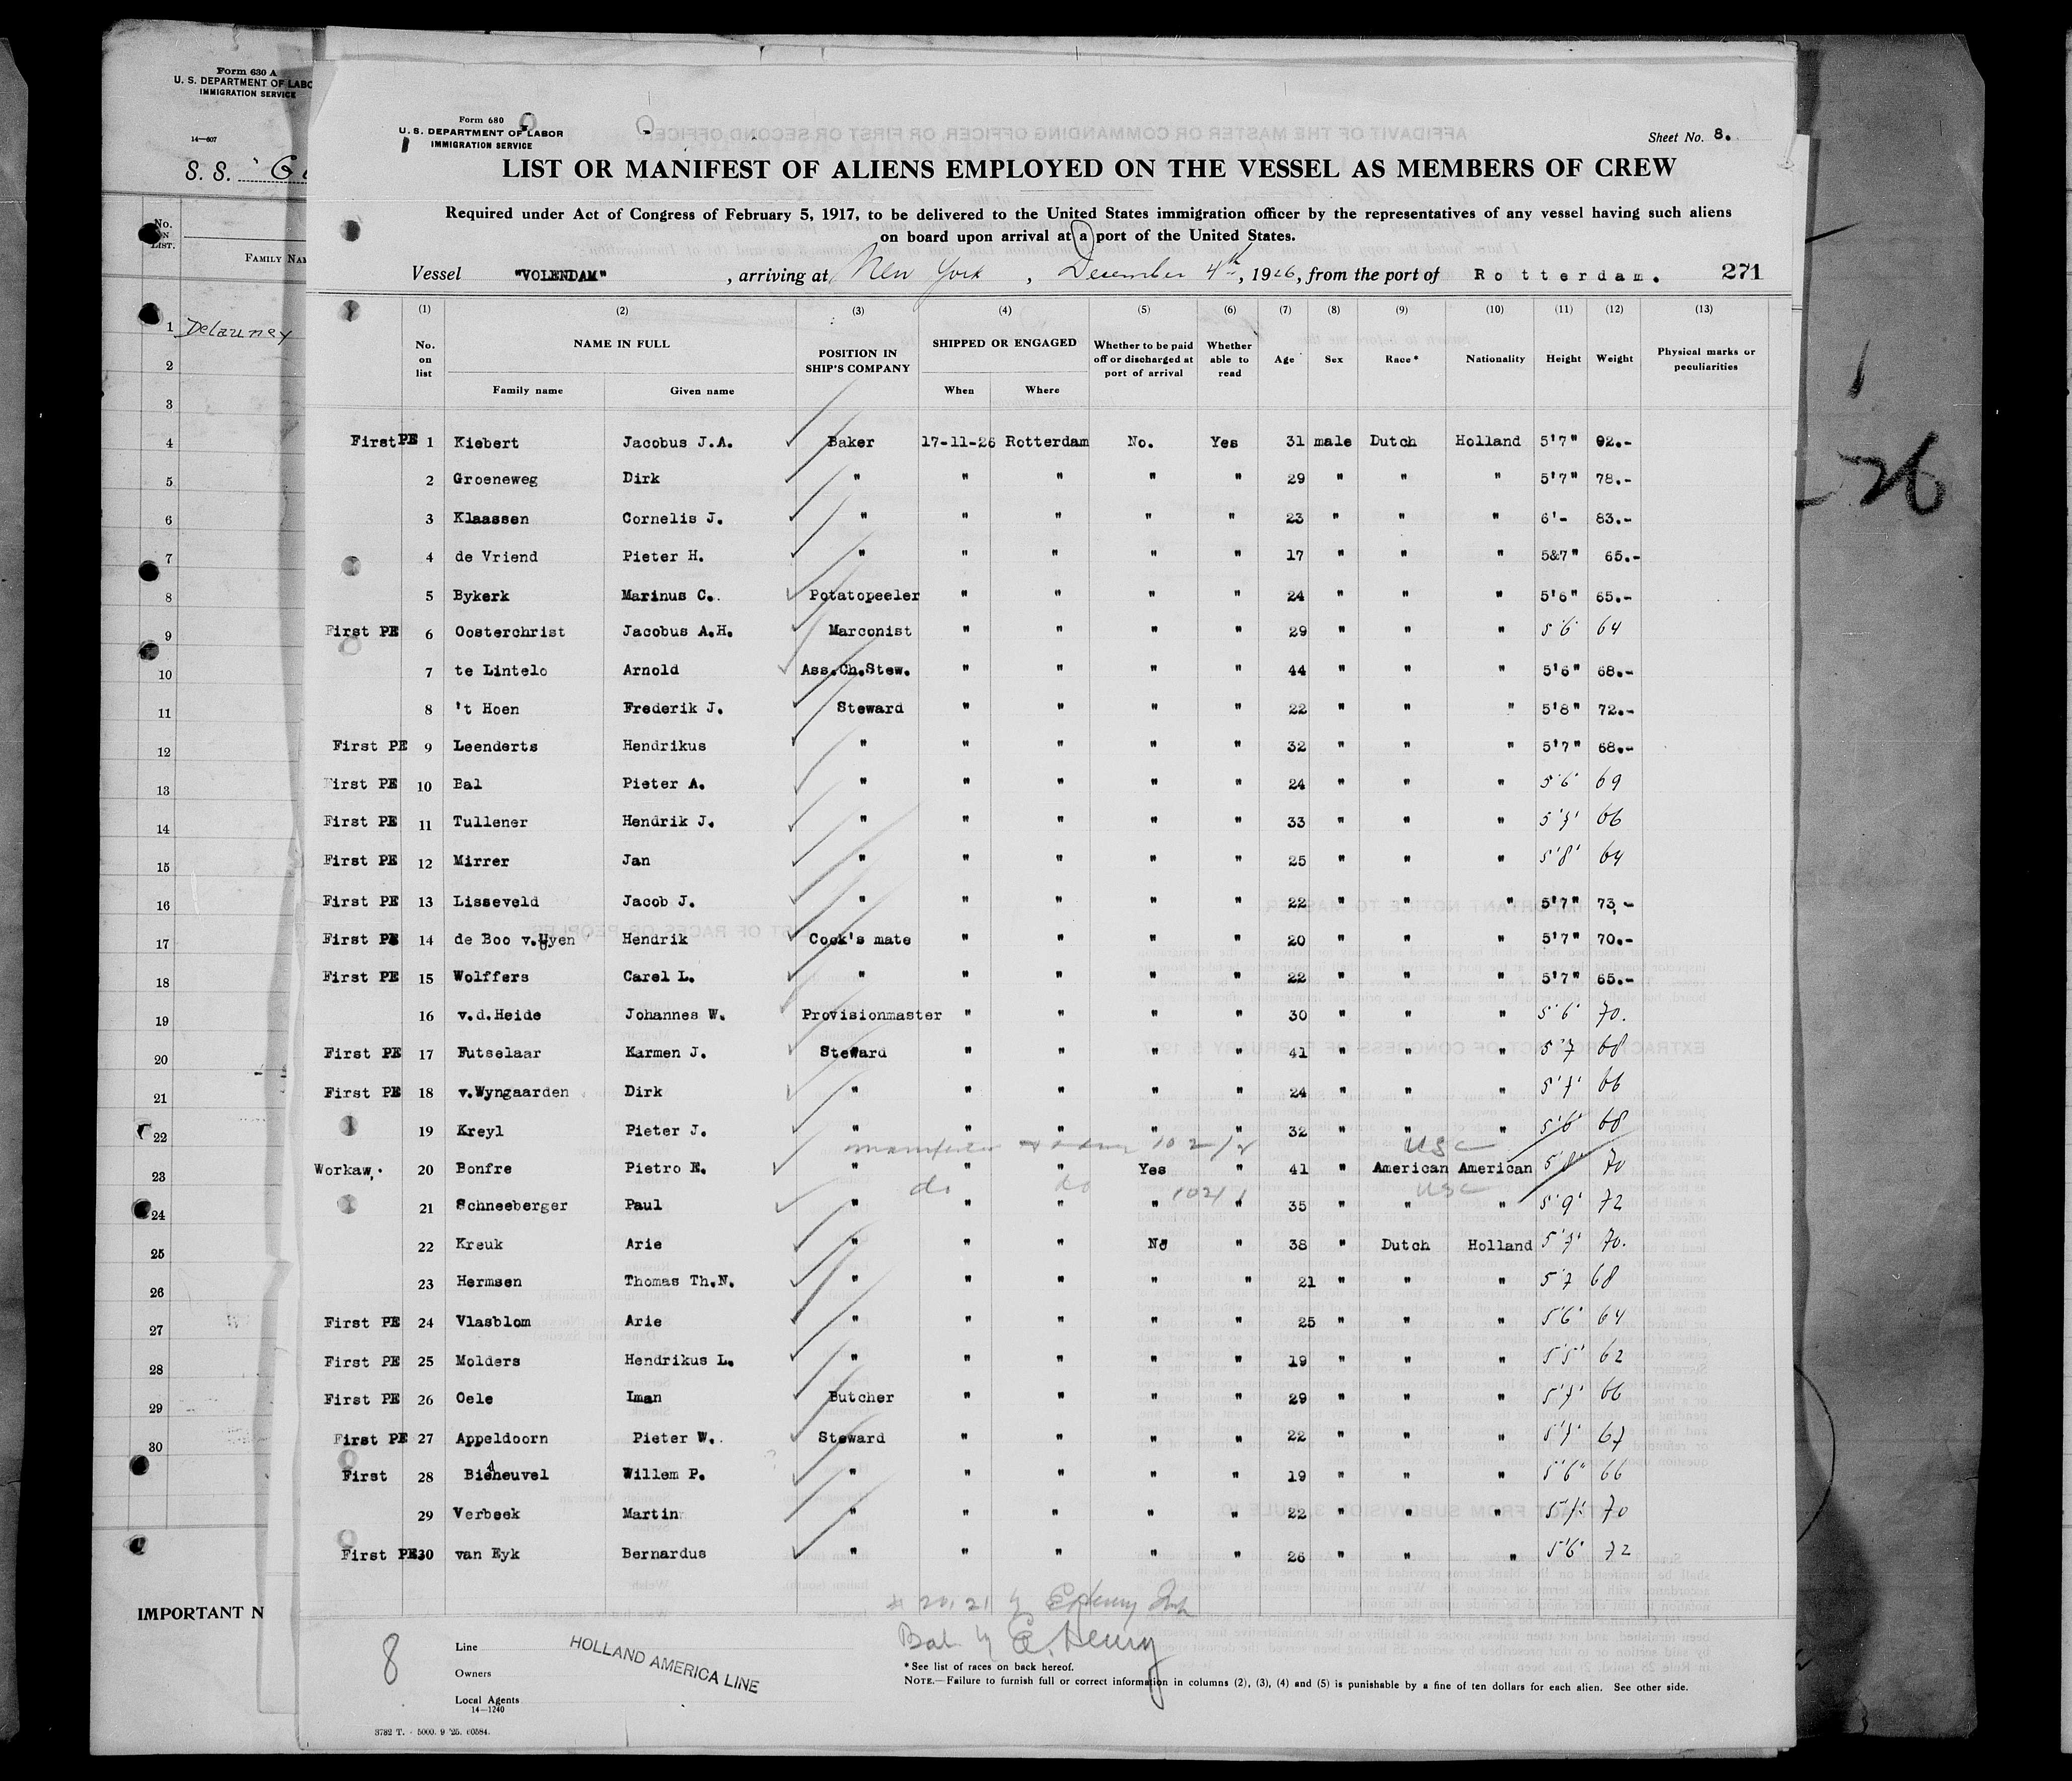 Form 630 A
U. S. DEPARTMENT OF LABO
IMMIGRATION SERVICE
14—607
S. S.
No. ON LIST.
FAMILY NAM
1 Delauney
2
3
4
5
6
7
8
9
10
11
12
13
14
15
16
17
18
19
20
21
22
23
24
25
26
27
28
29
30
IMPORTANT N
Form 680
U. S. DEPARTMENT OF LABOR
IMMIGRATION SERVICE
Sheet No. 8.
LIST OR MANIFEST OF ALIENS EMPLOYED ON THE VESSEL AS MEMBERS OF CREW
Required under Act of Congress of February 5, 1917, to be delivered to the United States immigration officer by the representatives of any vessel having such aliens
on board upon arrival at a port of the United States.
Vessel "VOLENDAM", arriving at New York, December 4th, 1926, from the port of Rotterdam. 271
(1) (2) (3) (4) (5) (6) (7) (8) (9) (10) (11) (12) (13)
No. on list NAME IN FULL POSITION IN SHIP'S COMPANY SHIPPED OR ENGAGED Whether to be paid off or discharged at port of arrival Whether able to read Age Sex Race* Nationality Height Weight Physical marks or peculiarities
Family name Given name When Where
First PE 1 Kiebert Jacobus J.A. Baker 17-11-26 Rotterdam No. Yes 31 male Dutch Holland 5'7" 92.-
2 Groeneweg Dirk " " " " " 29 " " " 5'7" 78.-
3 Klaassen Cornelis J. " " " " " 23 " " " 6'- 83.-
4 de Vriend Pieter H. " " " " " 17 " " " 5&7" 65.-
5 Bykerk Marinus C. Potatopeeler " " " " 24 " " " 5'6" 65.-
First PE 6 Oosterchrist Jacobus A.H. Marconist " " " " 29 " " " 5'6' 64
7 te Lintelo Arnold Ass.Ch.Stew. " " " " 44 " " " 5'6" 68.-
8 't Hoen Frederik J. Steward " " " " 22 " " " 5'8" 72.-
First PE 9 Leenderts Hendrikus " " " " " 32 " " " 5'7" 68.-
First PE 10 Bal Pieter A. " " " " " 24 " " " 5'6' 69
First PE 11 Tullener Hendrik J. " " " " " 33 " " " 5'7' 66
First PE 12 Mirrer Jan " " " " " 25 " " " 5'8' 64
First PE 13 Lisseveld Jacob J. " " " " " 22 " " " 5'7" 73,-
First PE 14 de Boo v.Uyen Hendrik Cook's mate " " " " 20 " " " 5'7" 70.-
First PE 15 Wolffers Carel L. " " " " " 22 " " " 5'7" 65.-
16 v.d.Heide Johannes W. Provisionmaster " " " " 30 " " " 5'6' 70.
First PE 17 Futselaar Karmen J. Steward " " " " 41 " " " 5'7 68
First PE 18 v.Wyngaarden Dirk " " " " " 24 " " " 5'7' 66
19 Kreyl Pieter J. " " " " " 32 " " " 5'6' 68
USC
Workaw. 20 Bonfre Pietro E. " " " Yes " 41 " American American 5'8" 70
do do 1021 USC
21 Schneeberger Paul " " " " " 35 " " " 5'9' 72
22 Kreuk Arie " " " No " 38 " Dutch Holland 5'7' 70.
23 Hermsen Thomas Th.N. " " " " " 21 " " " 5'7 68
First PE 24 Vlasblom Arie " " " " " 25 " " " 5'6' 64
First PE 25 Molders Hendrikus L. " " " " " 19 " " " 5'5' 62
First PE 26 Oele Iman Butcher " " " " 29 " " " 5'7' 66
First PE 27 Appeldoorn Pieter W. Steward " " " " 22 " " " 5'7' 67
First 28 Bieheuvel Willem P. " " " " " 19 " " " 5'6" 66
29 Verbeek Martin " " " " " 22 " " " 70
First PE 30 van Eyk Bernardus " " " " " 26 " " " 5'6' 72
# 20, 21 by E Henry
Bal by E. Henry
8
Line
HOLLAND AMERICA LINE
Owners
Local Agents
14—1240
*See list of races on back hereof.
NOTE.—Failure to furnish full or correct information in columns (2), (3), (4) and (5) is punishable by a fine of ten dollars for each alien. See other side.
3782 T. - 5000. 9 '25. 60584.
26